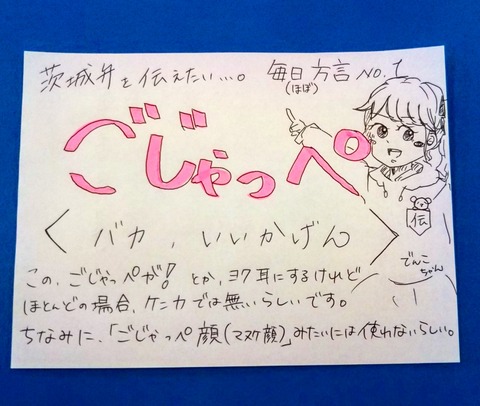 茨城弁を伝えたい…。
毎日方言 No.1
(ほぼ)
ごじゃっぺ
〈バカ、いいかげん〉
伝
でんこちゃん
この、ごじゃっぺが!とか、ヨク耳にするけれど
ほとんどの場合、ケンカでは無いらしいです。
ちなみに、「ごじゃっぺ顔(マヌケ顔)」みたいには使わないらしい。